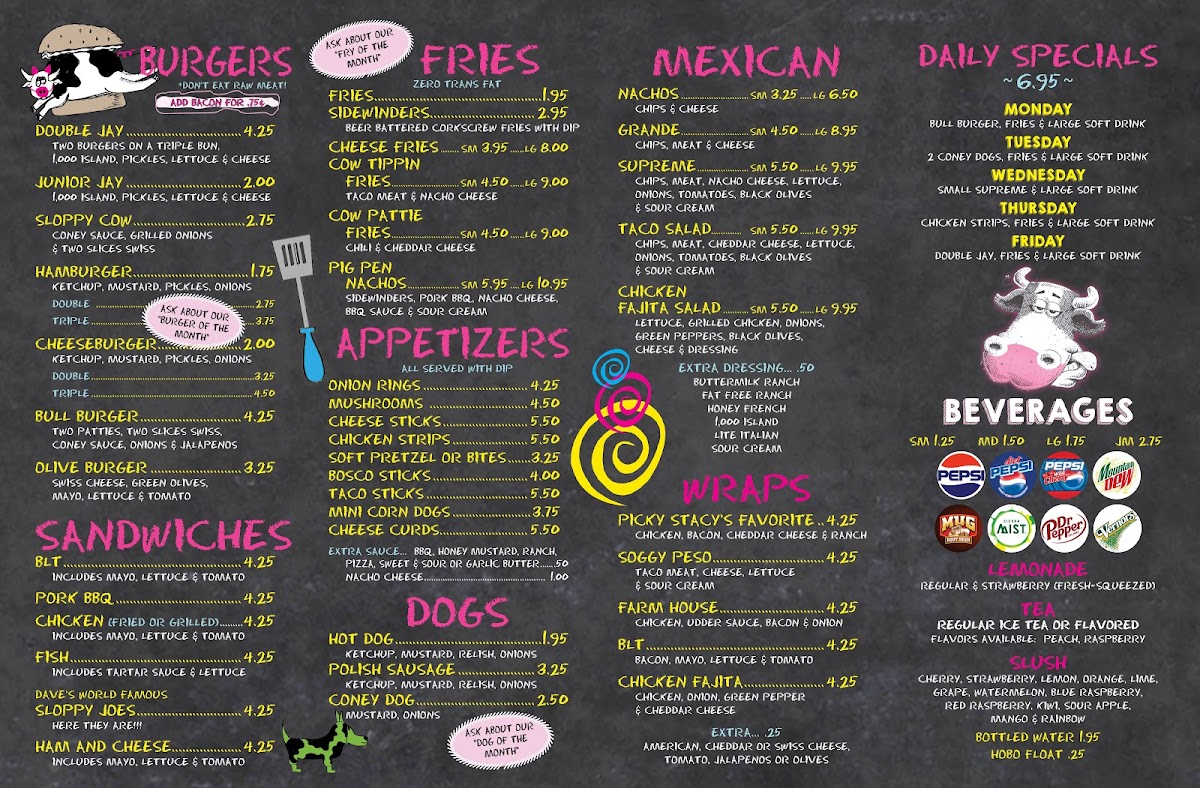 BURGERS
*DON'T EAT RAW MEAT!
ADD BACON FOR .75¢
DOUBLE JAY 4.25
TWO BURGERS ON A TRIPLE BUN,
1,000 ISLAND, PICKLES, LETTUCE & CHEESE
JUNIOR JAY 2.00
1,000 ISLAND, PICKLES, LETTUCE & CHEESE
SLOPPY COW 2.75
CONEY SAUCE, GRILLED ONIONS
& TWO SLICES SWISS
HAMBURGER 1.75
KETCHUP, MUSTARD, PICKLES, ONIONS
DOUBLE 2.75
TRIPLE 3.75
ASK ABOUT OUR
"BURGER OF THE
MONTH"
CHEESEBURGER 2.00
KETCHUP, MUSTARD, PICKLES, ONIONS
DOUBLE 3.25
TRIPLE 4.50
BULL BURGER 4.25
TWO PATTIES, TWO SLICES SWISS,
CONEY SAUCE, ONIONS & JALAPENOS
OLIVE BURGER 3.25
SWISS CHEESE, GREEN OLIVES,
MAYO, LETTUCE & TOMATO
SANDWICHES
BLT 4.25
INCLUDES MAYO, LETTUCE & TOMATO
PORK BBQ 4.25
CHICKEN (FRIED OR GRILLED) 4.25
INCLUDES MAYO, LETTUCE & TOMATO
FISH 4.25
INCLUDES TARTAR SAUCE & LETTUCE
DAVE'S WORLD FAMOUS
SLOPPY JOES 4.25
HERE THEY ARE!!!
HAM AND CHEESE 4.25
INCLUDES MAYO, LETTUCE & TOMATO
ASK ABOUT OUR
"FRY OF THE
MONTH"
FRIES
ZERO TRANS FAT
FRIES 1.95
SIDEWINDERS 2.95
BEER BATTERED CORKSCREW FRIES WITH DIP
CHEESE FRIES SM 3.95 LG 8.00
COW TIPPIN
FRIES SM 4.50 LG 9.00
TACO MEAT & NACHO CHEESE
COW PATTIE
FRIES SM 4.50 LG 9.00
CHILI & CHEDDAR CHEESE
PIG PEN
NACHOS SM 5.95 LG 10.95
SIDEWINDERS, PORK BBQ, NACHO CHEESE,
BBQ SAUCE & SOUR CREAM
APPETIZERS
ALL SERVED WITH DIP
ONION RINGS 4.25
MUSHROOMS 4.50
CHEESE STICKS 5.50
CHICKEN STRIPS 5.50
SOFT PRETZEL OR BITES 3.25
BOSCO STICKS 4.00
TACO STICKS 5.50
MINI CORN DOGS 3.75
CHEESE CURDS 5.50
EXTRA SAUCE... BBQ, HONEY MUSTARD, RANCH,
PIZZA, SWEET & SOUR OR GARLIC BUTTER .50
NACHO CHEESE 1.00
DOGS
HOT DOG 1.95
KETCHUP, MUSTARD, RELISH, ONIONS
POLISH SAUSAGE 3.25
KETCHUP, MUSTARD, RELISH, ONIONS
CONEY DOG 2.50
MUSTARD, ONIONS
ASK ABOUT OUR
"DOG OF THE
MONTH"
MEXICAN
NACHOS SM 3.25 LG 6.50
CHIPS & CHEESE
GRANDE SM 4.50 LG 8.95
CHIPS, MEAT & CHEESE
SUPREME SM 5.50 LG 9.95
CHIPS, MEAT, NACHO CHEESE, LETTUCE,
ONIONS, TOMATOES, BLACK OLIVES
& SOUR CREAM
TACO SALAD SM 5.50 LG 9.95
CHIPS, MEAT, CHEDDAR CHEESE, LETTUCE,
ONIONS, TOMATOES, BLACK OLIVES
& SOUR CREAM
CHICKEN
FAJITA SALAD SM 5.50 LG 9.95
LETTUCE, GRILLED CHICKEN, ONIONS,
GREEN PEPPERS, BLACK OLIVES,
CHEESE & DRESSING
EXTRA DRESSING... .50
BUTTERMILK RANCH
FAT FREE RANCH
HONEY FRENCH
1,000 ISLAND
LITE ITALIAN
SOUR CREAM
WRAPS
PICKY STACY'S FAVORITE 4.25
CHICKEN, BACON, CHEDDAR CHEESE & RANCH
SOGGY PESO 4.25
TACO MEAT, CHEESE, LETTUCE
& SOUR CREAM
FARM HOUSE 4.25
CHICKEN, UDDER SAUCE, BACON & ONION
BLT 4.25
BACON, MAYO, LETTUCE & TOMATO
CHICKEN FAJITA 4.25
CHICKEN, ONION, GREEN PEPPER
& CHEDDAR CHEESE
EXTRA... .25
AMERICAN, CHEDDAR OR SWISS CHEESE,
TOMATO, JALAPENOS OR OLIVES
DAILY SPECIALS
~ 6.95 ~
MONDAY
BULL BURGER, FRIES & LARGE SOFT DRINK
TUESDAY
2 CONEY DOGS, FRIES & LARGE SOFT DRINK
WEDNESDAY
SMALL SUPREME & LARGE SOFT DRINK
THURSDAY
CHICKEN STRIPS, FRIES & LARGE SOFT DRINK
FRIDAY
DOUBLE JAY, FRIES & LARGE SOFT DRINK
BEVERAGES
SM 1.25 MD 1.50 LG 1.75 JM 2.75
PEPSI diet PEPSI PEPSI Wild Cherry Mountain Dew
MUG ROOT BEER SIERRA MIST Dr Pepper Vernors
LEMONADE
REGULAR & STRAWBERRY (FRESH-SQUEEZED)
TEA
REGULAR ICE TEA OR FLAVORED
FLAVORS AVAILABLE: PEACH, RASPBERRY
SLUSH
CHERRY, STRAWBERRY, LEMON, ORANGE, LIME,
GRAPE, WATERMELON, BLUE RASPBERRY,
RED RASPBERRY, KIWI, SOUR APPLE,
MANGO & RAINBOW
BOTTLED WATER 1.95
HOBO FLOAT .25